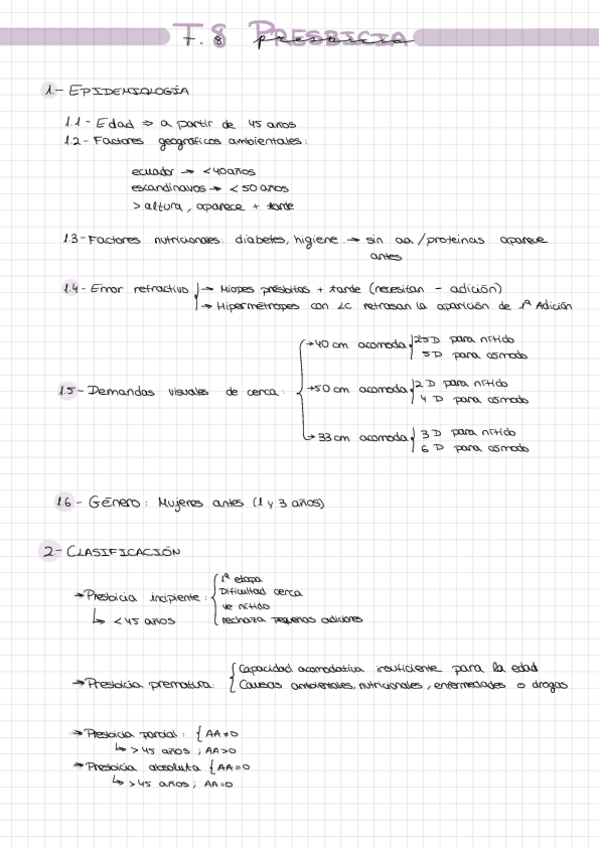 T.8 PRESBICIA
presbicia
1.- EPIDEMIOLOGÍA
1.1- Edad ⇒ a partir de 45 años
1.2- Factores geográficos ambientales:
ecuador → <40años
escandinavos → <50 años
> altura, aparece + tarde
1.3- Factores nutricionales: diabetes, higiene → sin aa/proteínas aparece
antes
1.4- Error refractivo → Miopes présbitas + tarde (necesitan - adición)
→ Hipermétropes con LC retrasan la aparición de 1ª Adición
1.5- Demandas visuales de cerca:
→ 40 cm acomoda 2'5D para nítido
5D para cómodo
→ 50 cm acomoda 2 D para nítido
4 D para cómodo
→ 33 cm acomoda 3 D para nítido
6 D para cómodo
1.6- Género: Mujeres antes (1 y 3 años)
2- CLASIFICACIÓN
→ Presbicia incipiente:
↳ <45 años
1ª etapa
Dificultad cerca
ve nítido
rechaza pequeñas adiciones
→ Presbicia prematura:
Capacidad acomodativa insuficiente para la edad
Causas ambientales, nutricionales, enfermedades o drogas
→ Presbicia parcial: { AA≠0
↳ >45 años ; AA>0
→ Presbicia absoluta { AA=0
↳ >45 años ; AA=0